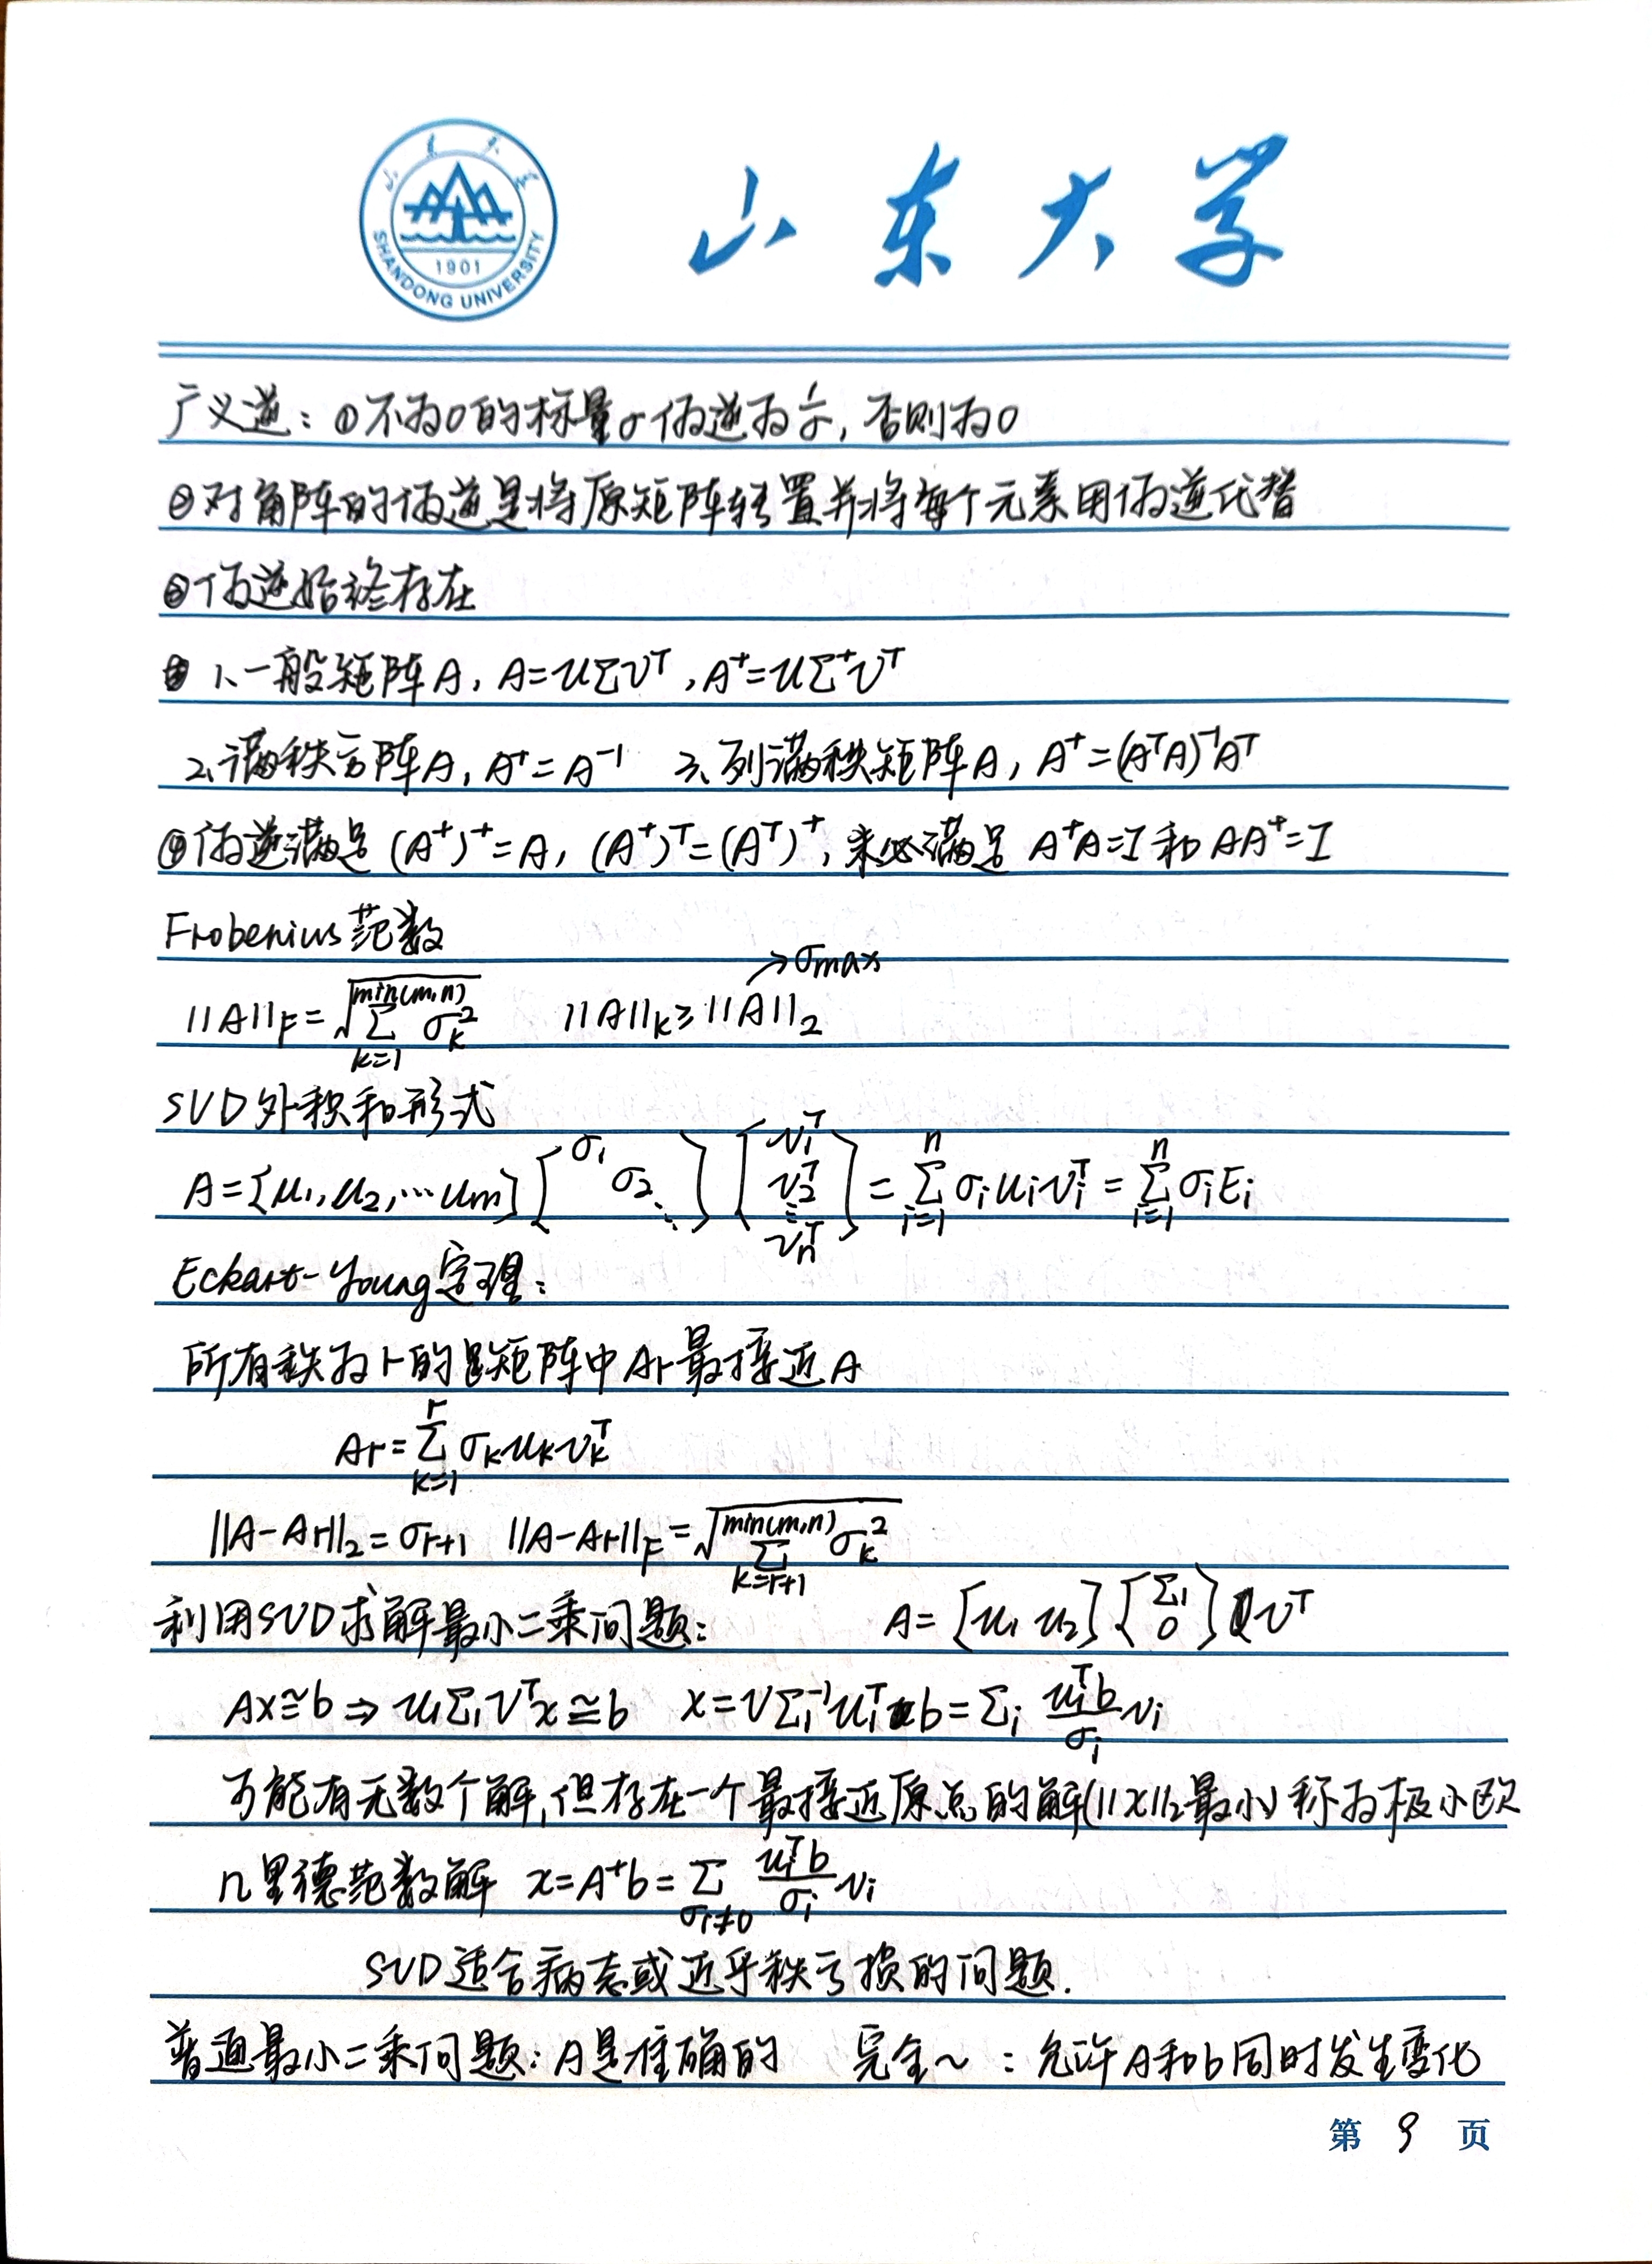 山东大学
SHANDONG UNIVERSITY
1901
山东大学
广义逆：①不为0的标量σ伪逆为1/σ，否则为0
②对角阵的伪逆是将原矩阵转置并将每个元素用伪逆代替
③伪逆始终存在
1、一般矩阵A，A=UΣVᵀ，A⁺=UΣ⁺Vᵀ
2、满秩方阵A，A⁺=A⁻¹ 3、列满秩矩阵A，A⁺=(AᵀA)⁻¹Aᵀ
④伪逆满足 (A⁺)⁺=A，(A⁺)ᵀ=(Aᵀ)⁺，未必满足 A⁺A=I 和 AA⁺=I
Frobenius范数
→σmax
||A||_F=√(Σ_{k=1}^{min(m,n)} σ_k²) ||A||_k≥||A||₂
SVD外积和形式
A=[u₁,u₂,…um][σ₁ σ₂ ⋱][v₁ᵀ v₂ᵀ ⋮ vnᵀ]=Σ_{i=1}^{n} σᵢuᵢvᵢᵀ=Σ_{i=1}^{n} σᵢEᵢ
Eckart-Young定理：
所有秩为r的矩阵中Ar最接近A
Ar=Σ_{k=1}^{r} σ_k u_k v_kᵀ
||A-Ar||₂=σ_{r+1} ||A-Ar||_F=√(Σ_{k=r+1}^{min(m,n)} σ_k²)
利用SVD求解最小二乘问题： A=[u₁ u₂][Σ₁ 0]Vᵀ
Ax≅b⇒u₁Σ₁Vᵀx≅b x=VΣ₁⁻¹u₁ᵀb=Σᵢ (uᵢᵀb/σᵢ) vᵢ
可能有无数个解，但存在一个最接近原点的解(||x||₂最小) 称为极小欧
几里德范数解 x=A⁺b=Σ_{σᵢ≠0} (uᵢᵀb/σᵢ) vᵢ
SVD适合病态或近乎秩亏损的问题.
普通最小二乘问题：A是准确的 完全～：允许A和b同时发生变化
第 9 页